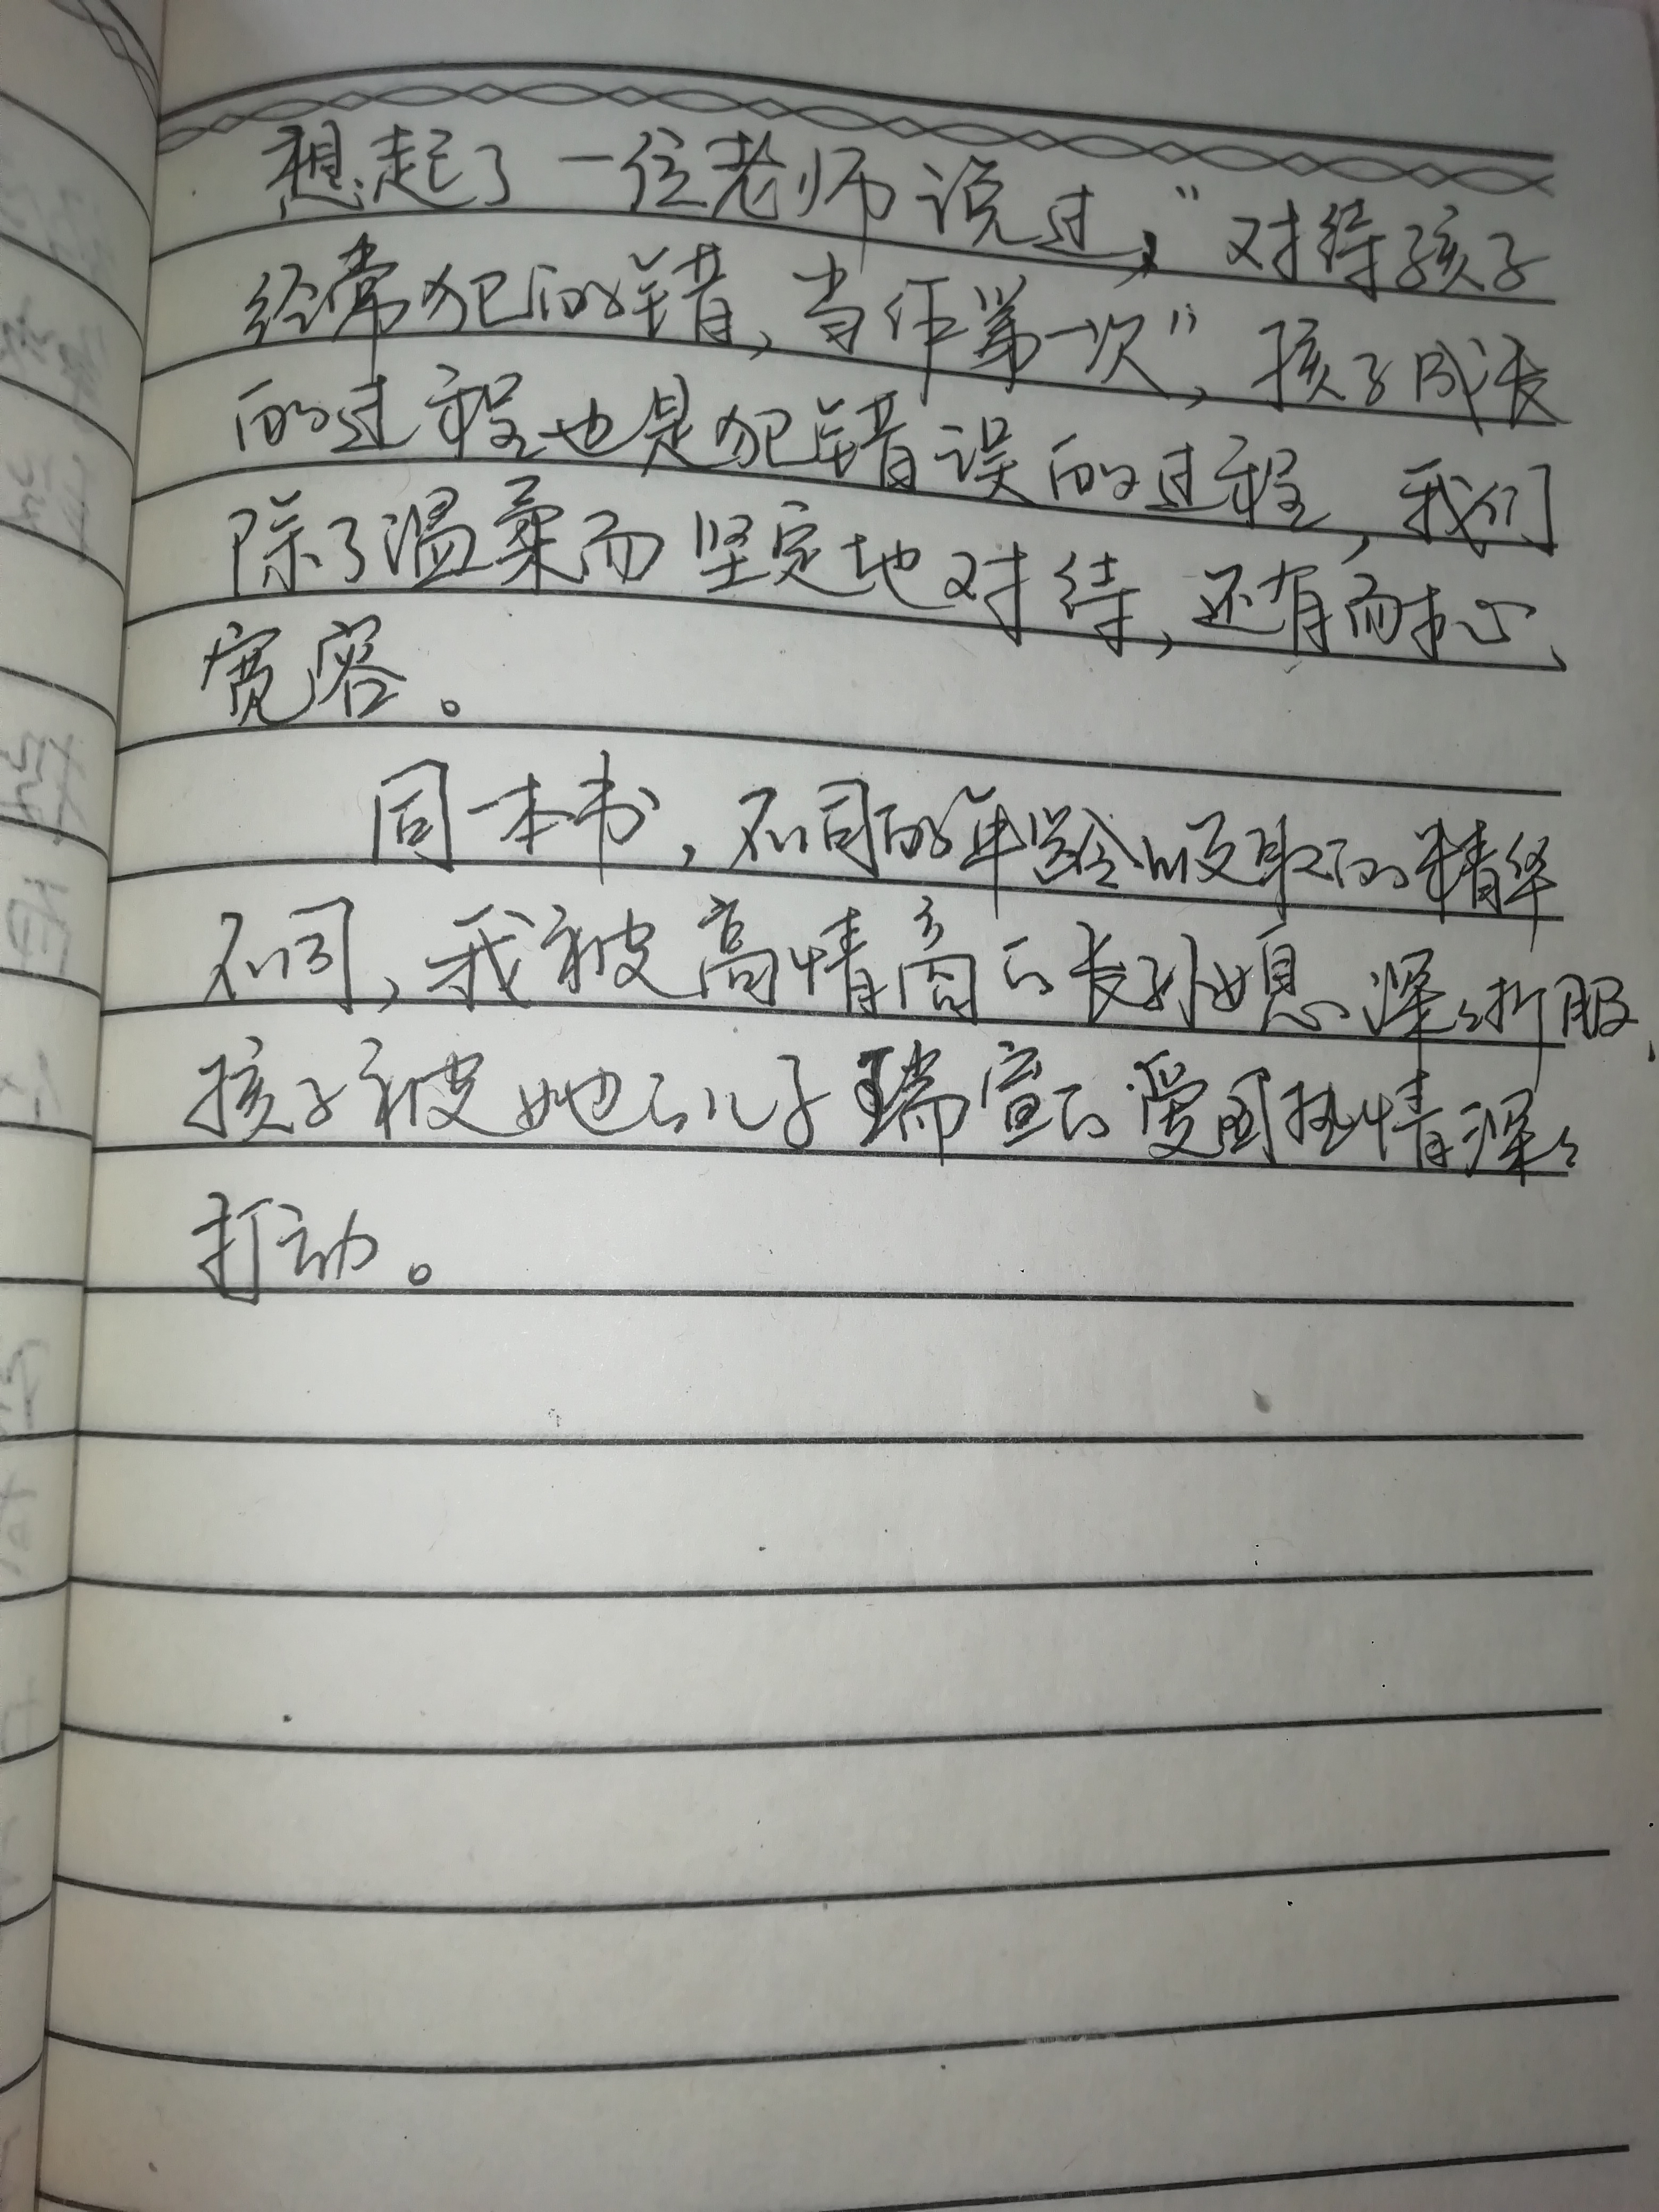 想起了一位老师说过，“对待孩子
经常犯的错，当作第一次”，孩子成长
的过程也是犯错误的过程，我们
除了温柔而坚定地对待，还有耐心、
宽容。
同一本书，不同的年龄吸取的精华
不同，我被高情商的长孙媳深深折服，
孩子被她的儿子瑞宣的爱国热情深深
打动。